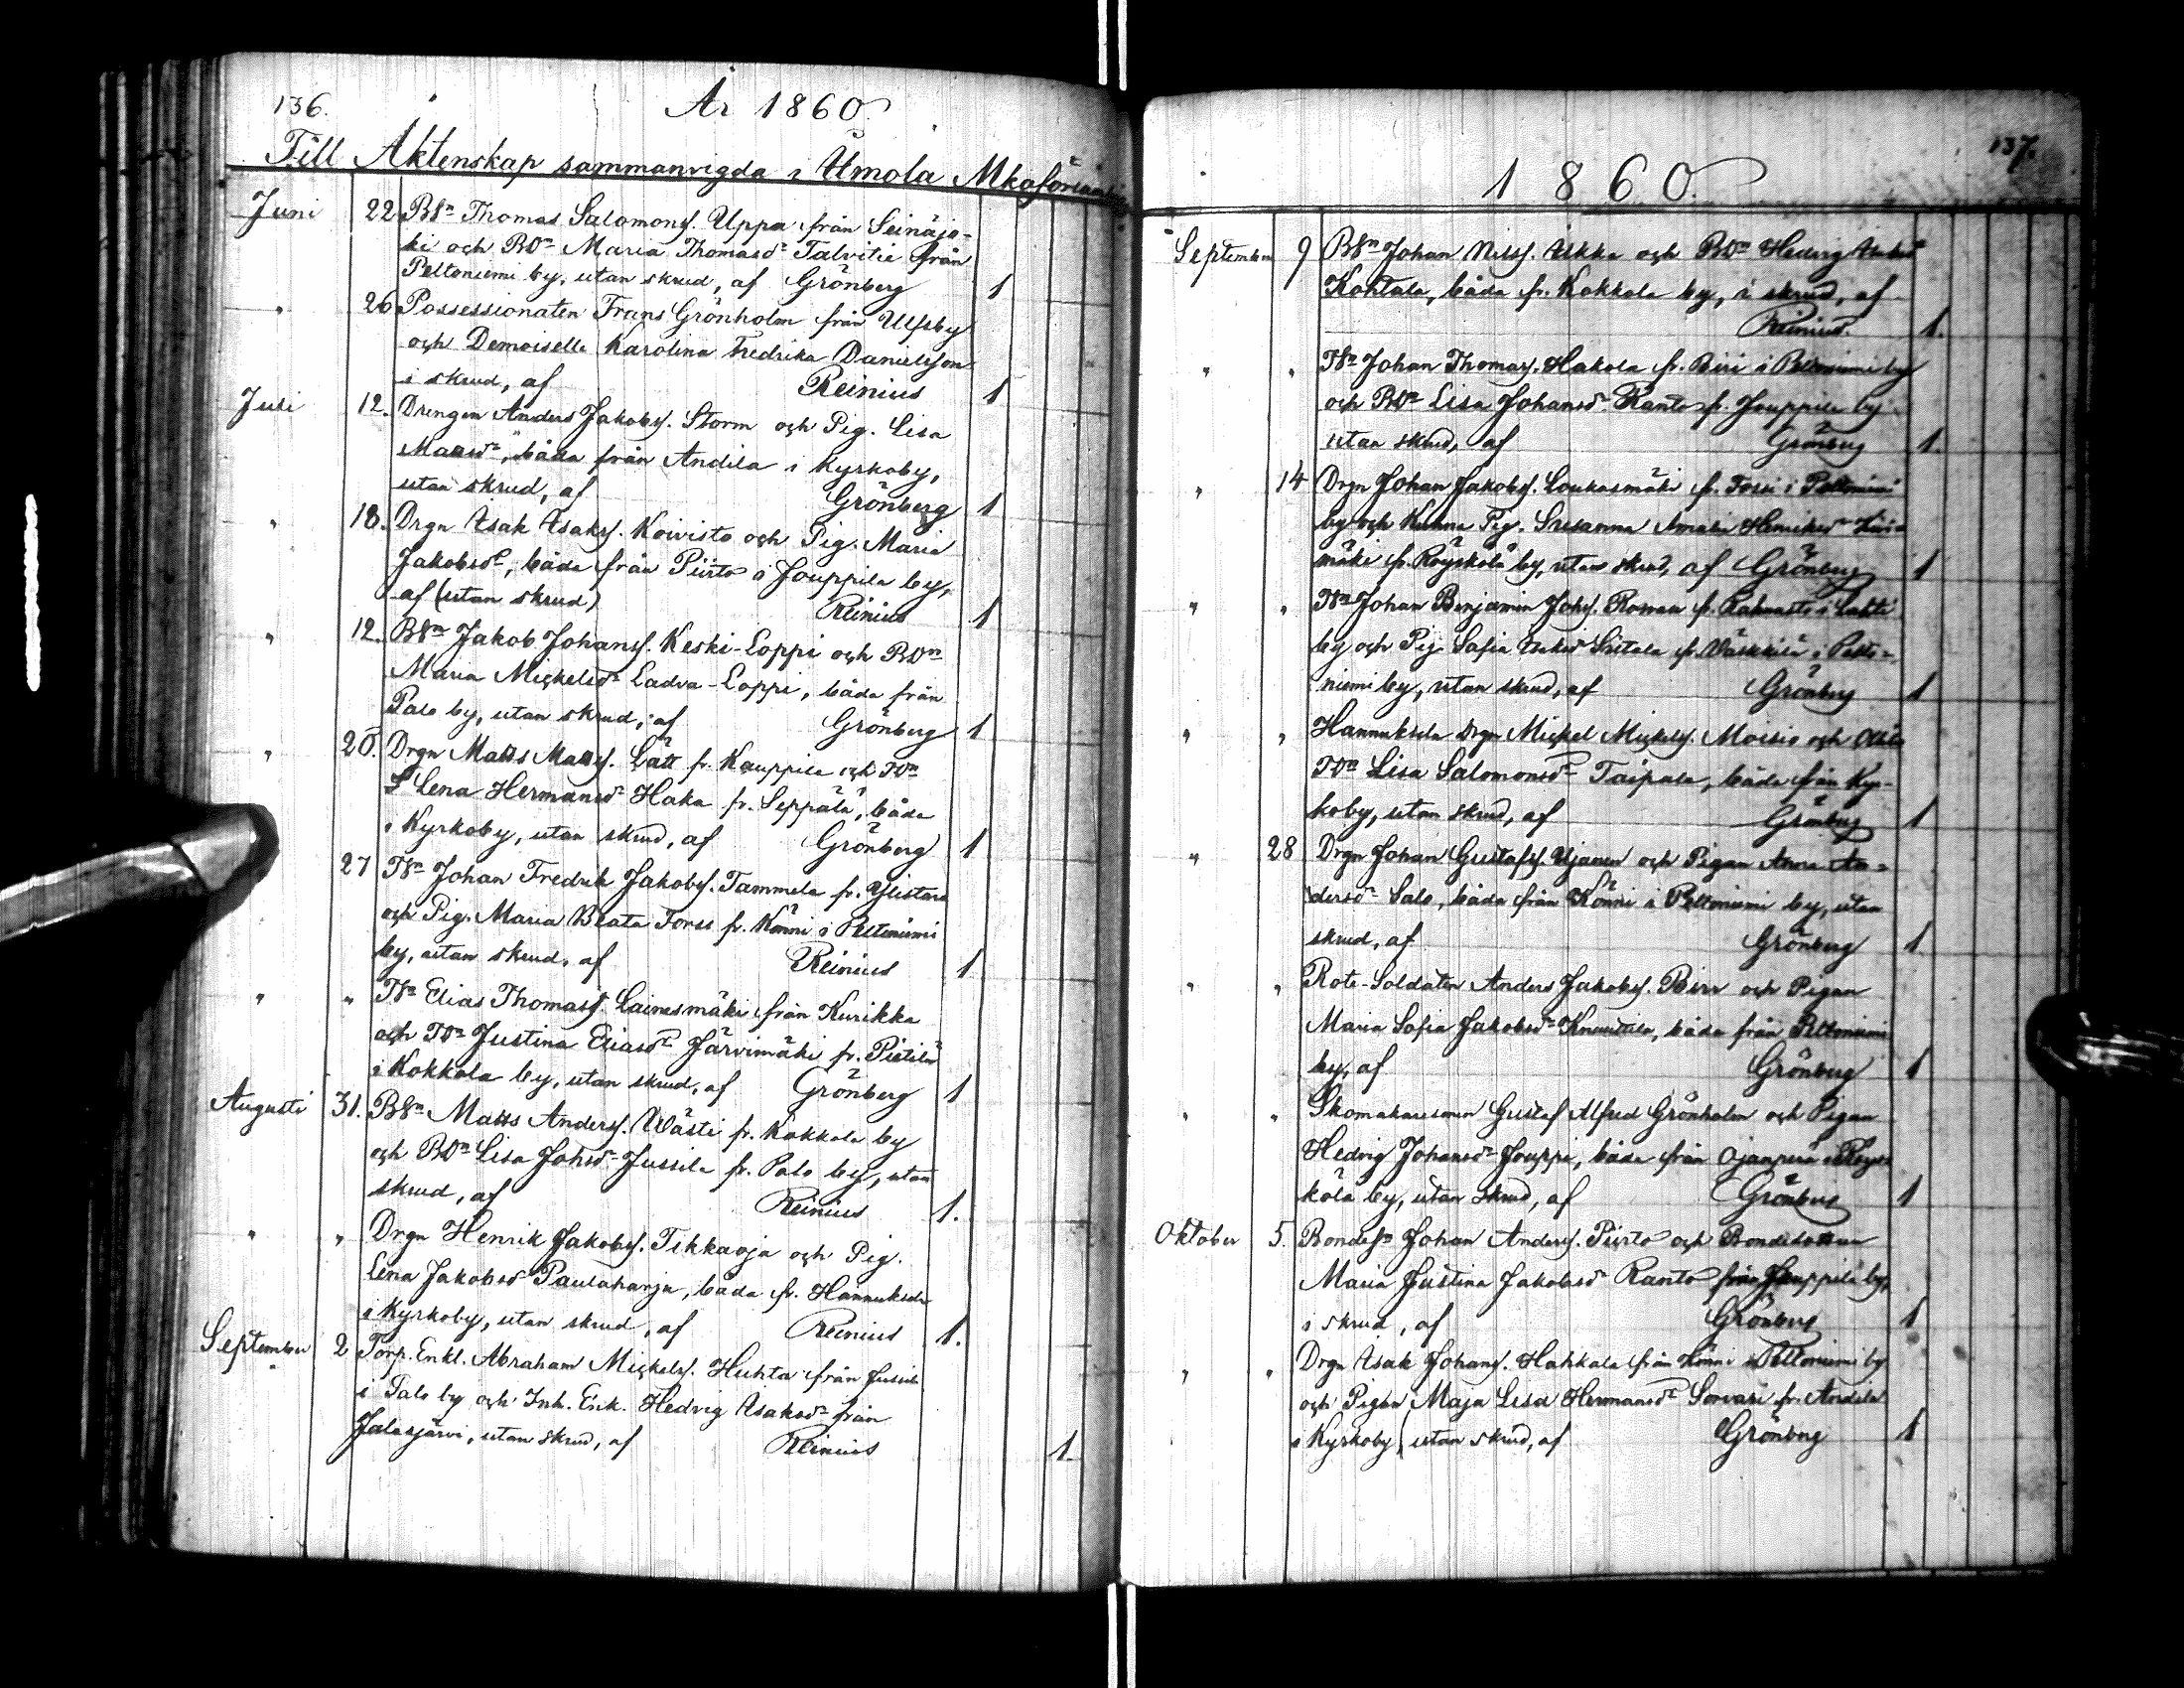 136.
År 1860.
Till Äktenskap sammanvigda i Ilmola Mkaförsaml
Juni 22 BSn Thomas Salomons. Uppa från Seinäjo-
ki och BDr Maria Thomasdr Talvitie från
Peltoniemi by, utan skrud, af Grönberg 1
" 26 Possessionaten Frans Grönholm från Ulfsby
och Demoiselle Karolina Fredrika Danielsson
i skrud, af Reinius 1
Juli 12. Drengen Anders Jakobs. Storm och Pig. Lisa
Mattsdr, båda från Andila i Kyrkoby,
utan skrud, af Grönberg 1
" 18. Drgn Isak Isaks. Koivisto och Pig. Maria
Jakobsdr, båda från Piirto i Jouppila by,
af (utan skrud) Reinius 1
" 12. BSn Jakob Johans. Keski-Loppi och BDr
Maria Mickelsdr Ladva-Loppi, båda från
Palo by, utan skrud, af Grönberg 1
" 20. Drgn Matts Matts. Lätt fr. Kauppila och TDr
Lena Hermansdr Haka fr. Seppälä, båda
i Kyrkoby, utan skrud, af Grönberg 1
27 TSn Johan Fredrik Jakobs. Tammela fr. Ylistaro
och Pig. Maria Beata Forss fr. Könni i Peltoniemi
by, utan skrud, af Reinius 1
" " TSn Elias Thomass. Lainesmäki från Kurikka
och TDr Justina Eliasdr Järvimäki fr. Pietilä
i Kokkola by, utan skrud, af Grönberg 1
Augusti 31. BSn Matts Anders. Wästi fr. Kokkola by
och BDr Lisa Johsdr Jussila fr. Palo by, utan
skrud, af Reinius 1.
" " Drgn Henrik Jakobs. Tikkaoja och Pig.
Lena Jakobsdr Paulaharju, båda fr. Hannuksela
i Kyrkoby, utan skrud, af Reinius 1.
September 2 Torp. Enkl. Abraham Mickels. Huhta från Jussila
i Palo by och Inh. Enk. Hedvig Isaksdr från
Jalasjärvi, utan skrud, af Reinius 1.
137.
1860.
September 9 BSn Johan Nilss. Ukka och BDr Hedvig
Kohtala, båda fr. Kokkola by, i skrud, af
Reinius. 1.
" " TSn Johan Thomas. Hakola fr. Biri i Peltoniemi by
och BDr Lisa Johansdr Ranto fr. Jouppila by
utan skrud, af Grönberg 1.
" 14 Drgn Johan Jakobs. Loukasmäki fr. Forss i Peltoniemi
by och Pig. Susanna Amalia Henriksdr
mäki fr. Röyskölä by, utan skrud, af Grönberg 1
" " TSn Johan Benjamin Johs. fr. i Lahti
by och Pig. Sofia Isaksdr fr. i Pelto-
niemi by, utan skrud, af Grönberg 1
" " Hannuksela Drgn Mickel Mickels. Moisio och
TDr Lisa Salomonsdr Taipale, båda från Kyr-
koby, utan skrud, af Grönberg 1
" 28 Drgn Johan Gustafs. Ujanen och Pigan Anna An-
dersdr Salo, båda från Könni i Peltoniemi by, utan
skrud, af Grönberg 1.
" " Rote-Soldaten Anders Jakobs. Birr och Pigan
Maria Sofia Jakobsdr Knuuttila, båda från Peltoniemi
by, af Grönberg 1
" " Skomakaresonen Gustaf Alfred Grönholm och Pigan
Hedvig Johansdr Jouppi, båda från Ojanperä i Röys-
kölä by, utan skrud, af Grönberg 1
Oktober 5. BondeSn Johan Anders. Piirto och Bondedottren
Maria Justina Jakobsdr Ranto från Jouppila by,
i skrud, af Grönberg 1
" " Drgn Isak Johans. Hahkala från Könni i Peltoniemi by
och Pigan Maja Lisa Hermansdr Sorvari fr. Andila
i Kyrkoby, utan skrud, af Grönberg 1